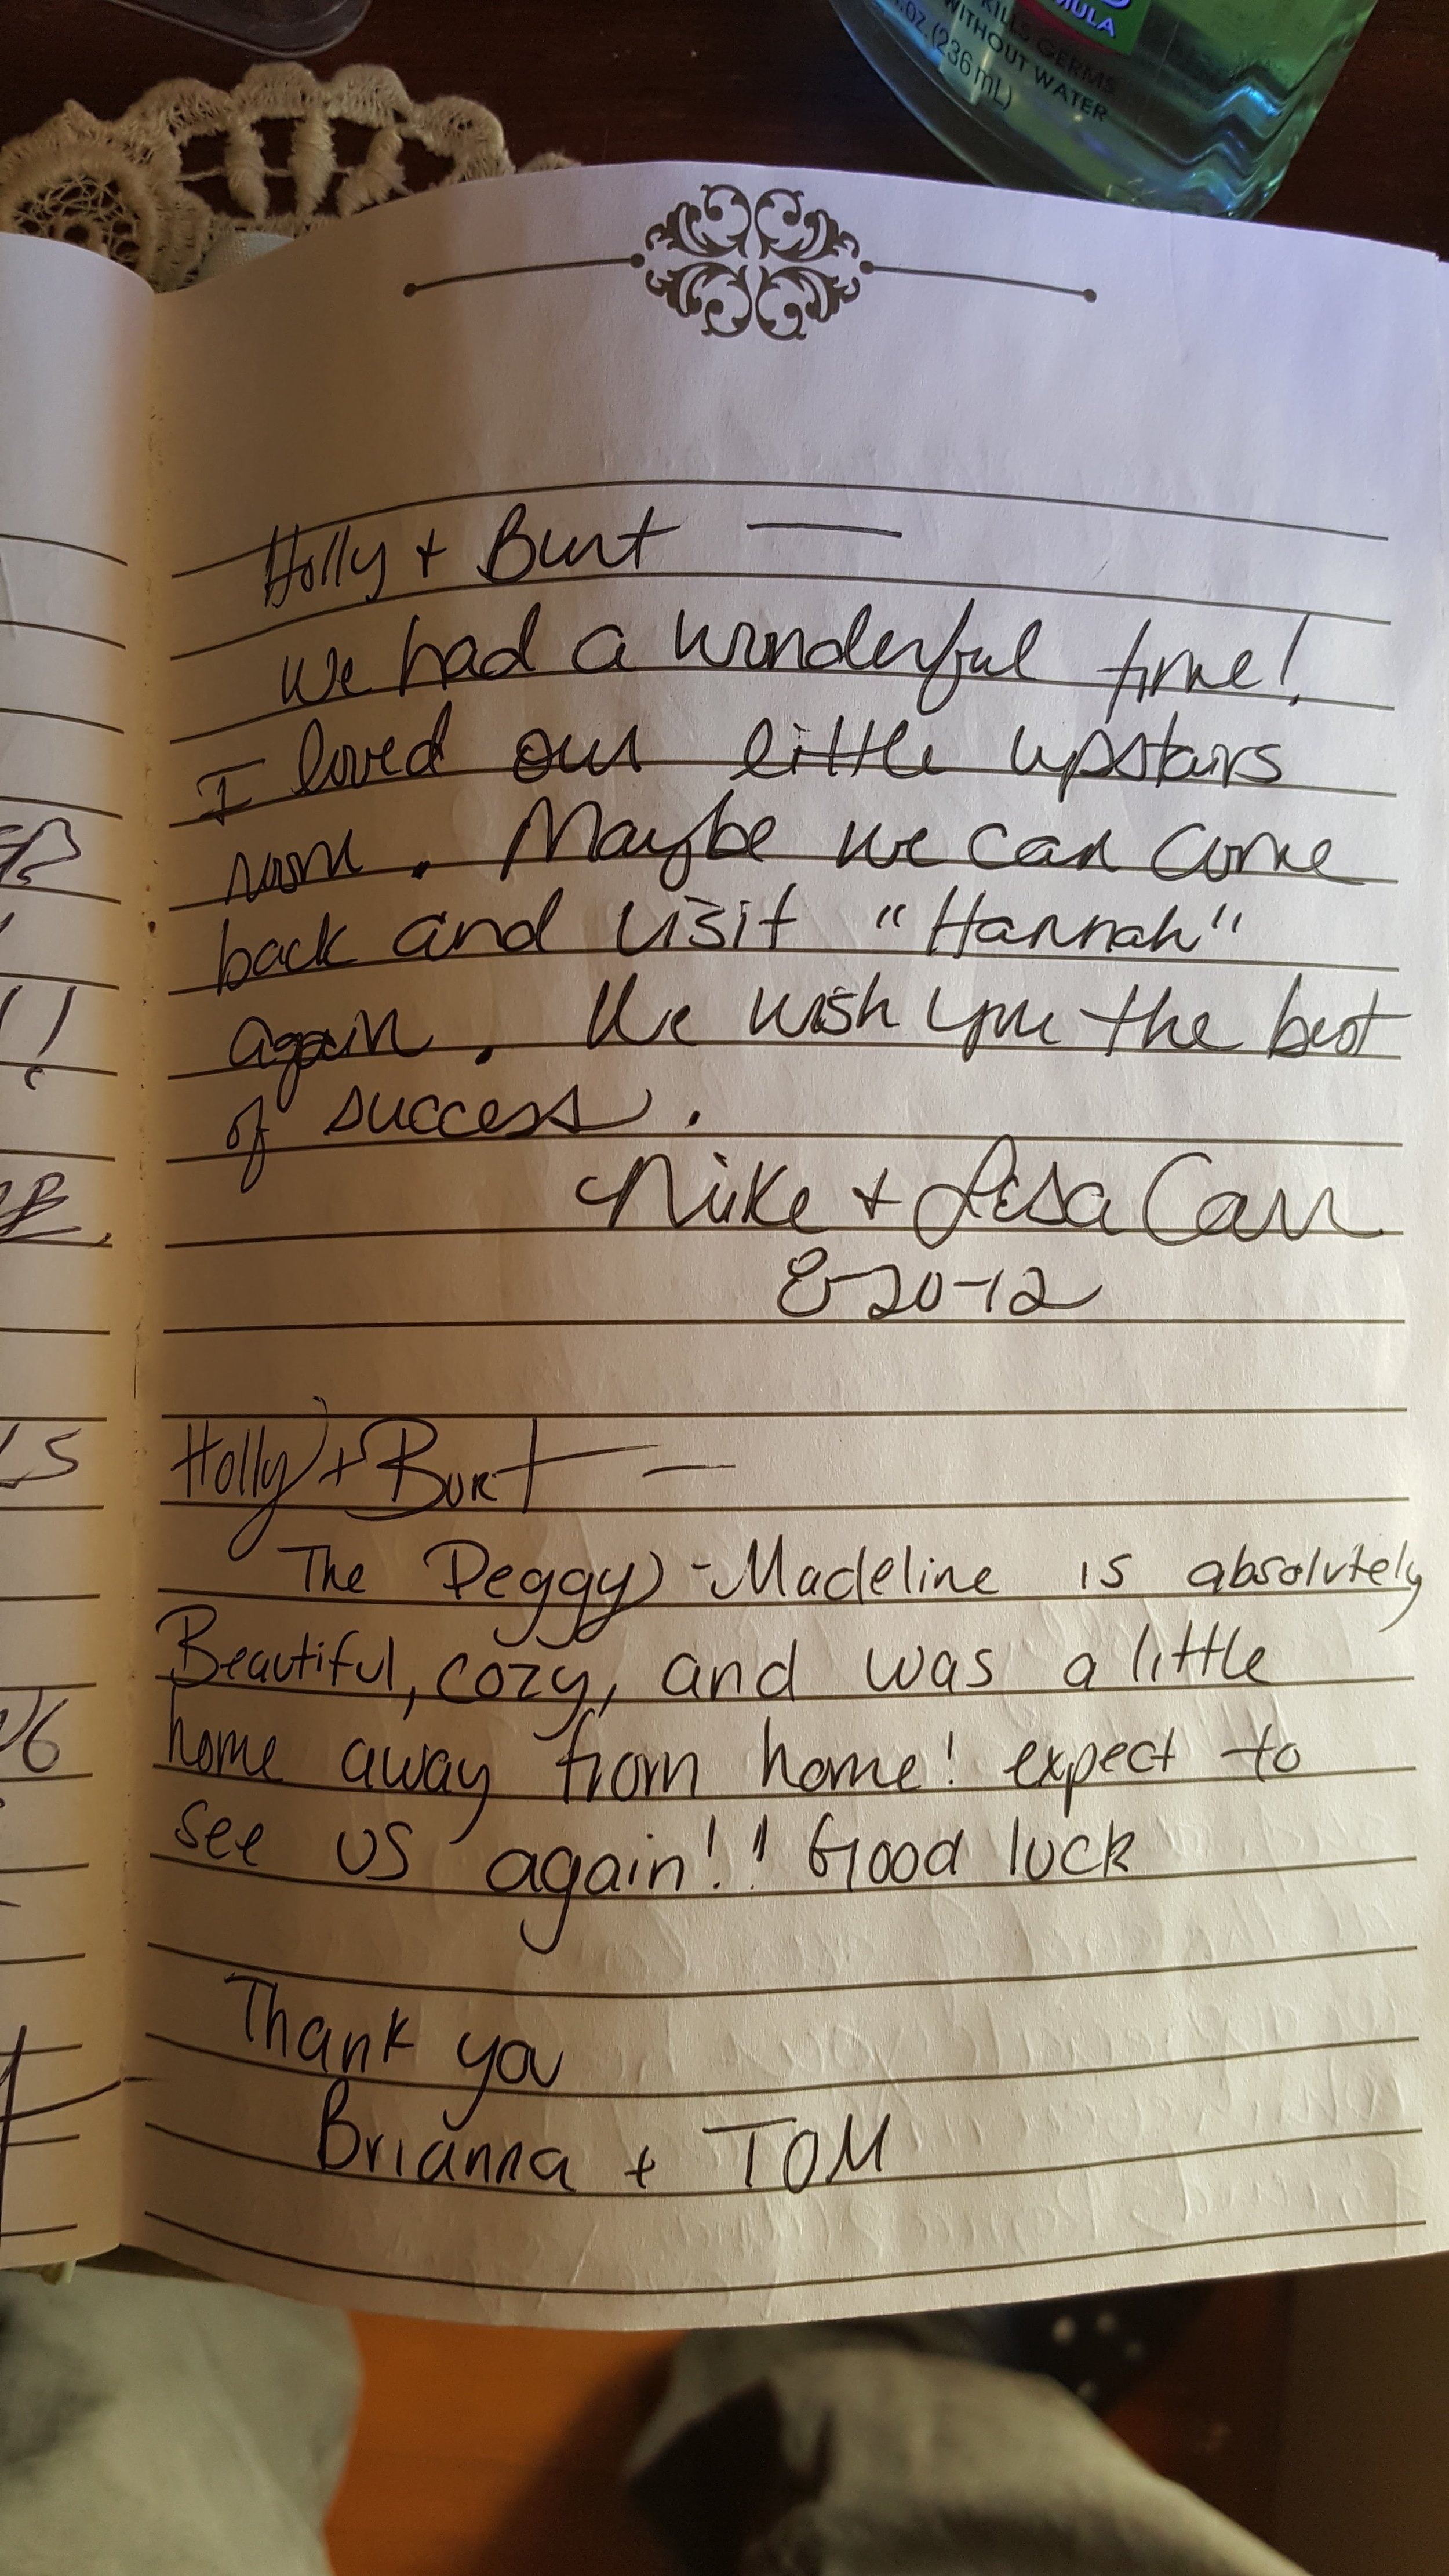 MULA
KILLS GERMS
WITHOUT WATER
OZ. (236 mL)
Holly + Burt —
We had a wonderful time!
I loved our little upstairs
room. Maybe we can come
back and visit "Hannah"
again. We wish you the best
of success.
Mike + Lisa Carr
8-20-12
Holly + Burt —
The Peggy-Madeline is absolutely
Beautiful, cozy, and was a little
home away from home! expect to
see us again!! Good luck
Thank you
Brianna + TOM